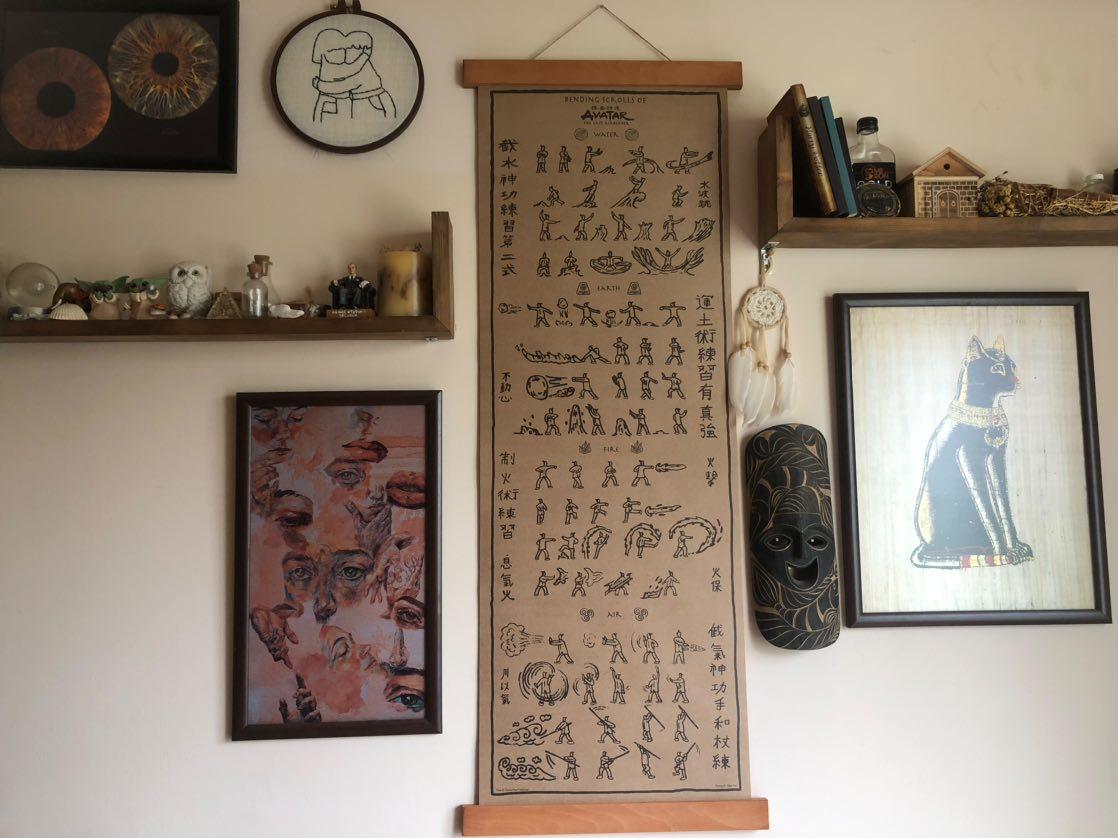 BENDING SCROLLS OF
AVATAR
THE LAST AIRBENDER
WATER
截水神功練習第二式
水波說
EARTH
運土術練習有真強
不動心
FIRE
制火術練習
息氣火
火擊
火保
AIR
截氣神功手和杖練
GOLD